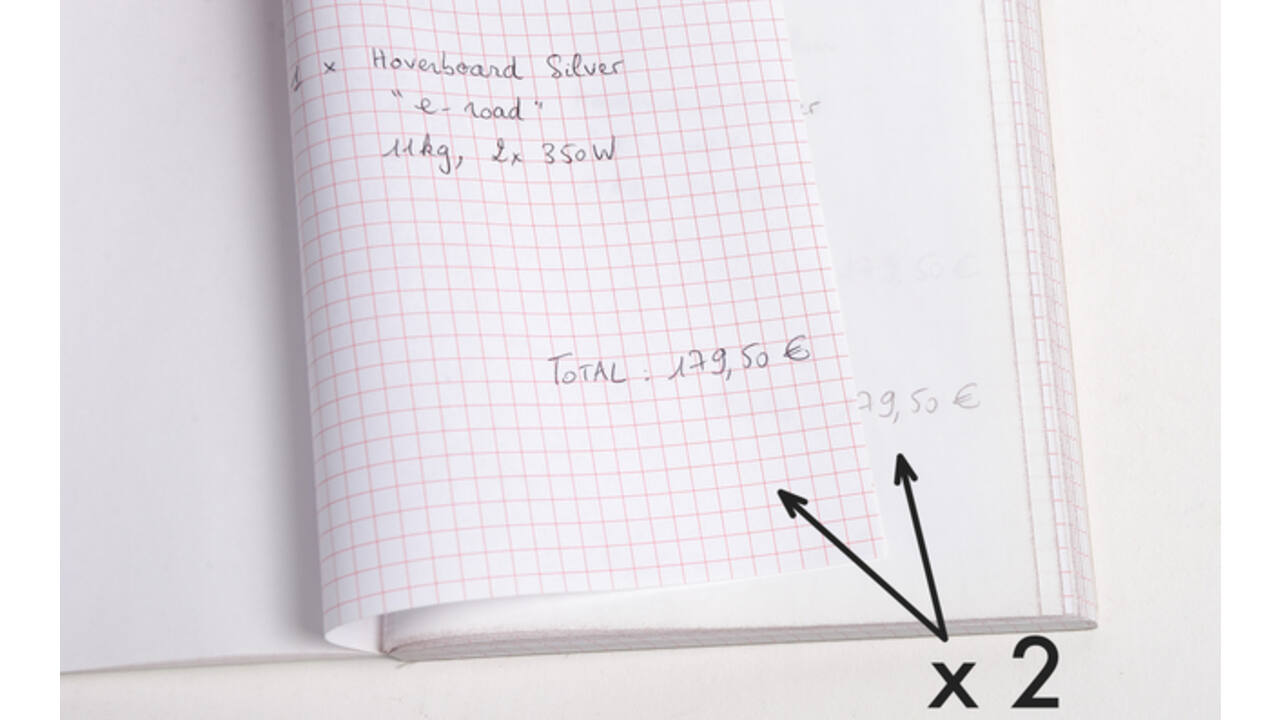 1 x Hoverboard Silver
" e-road "
11kg, 2x 350W
TOTAL : 179,50 €
179,50 €
79,50 €
x 2